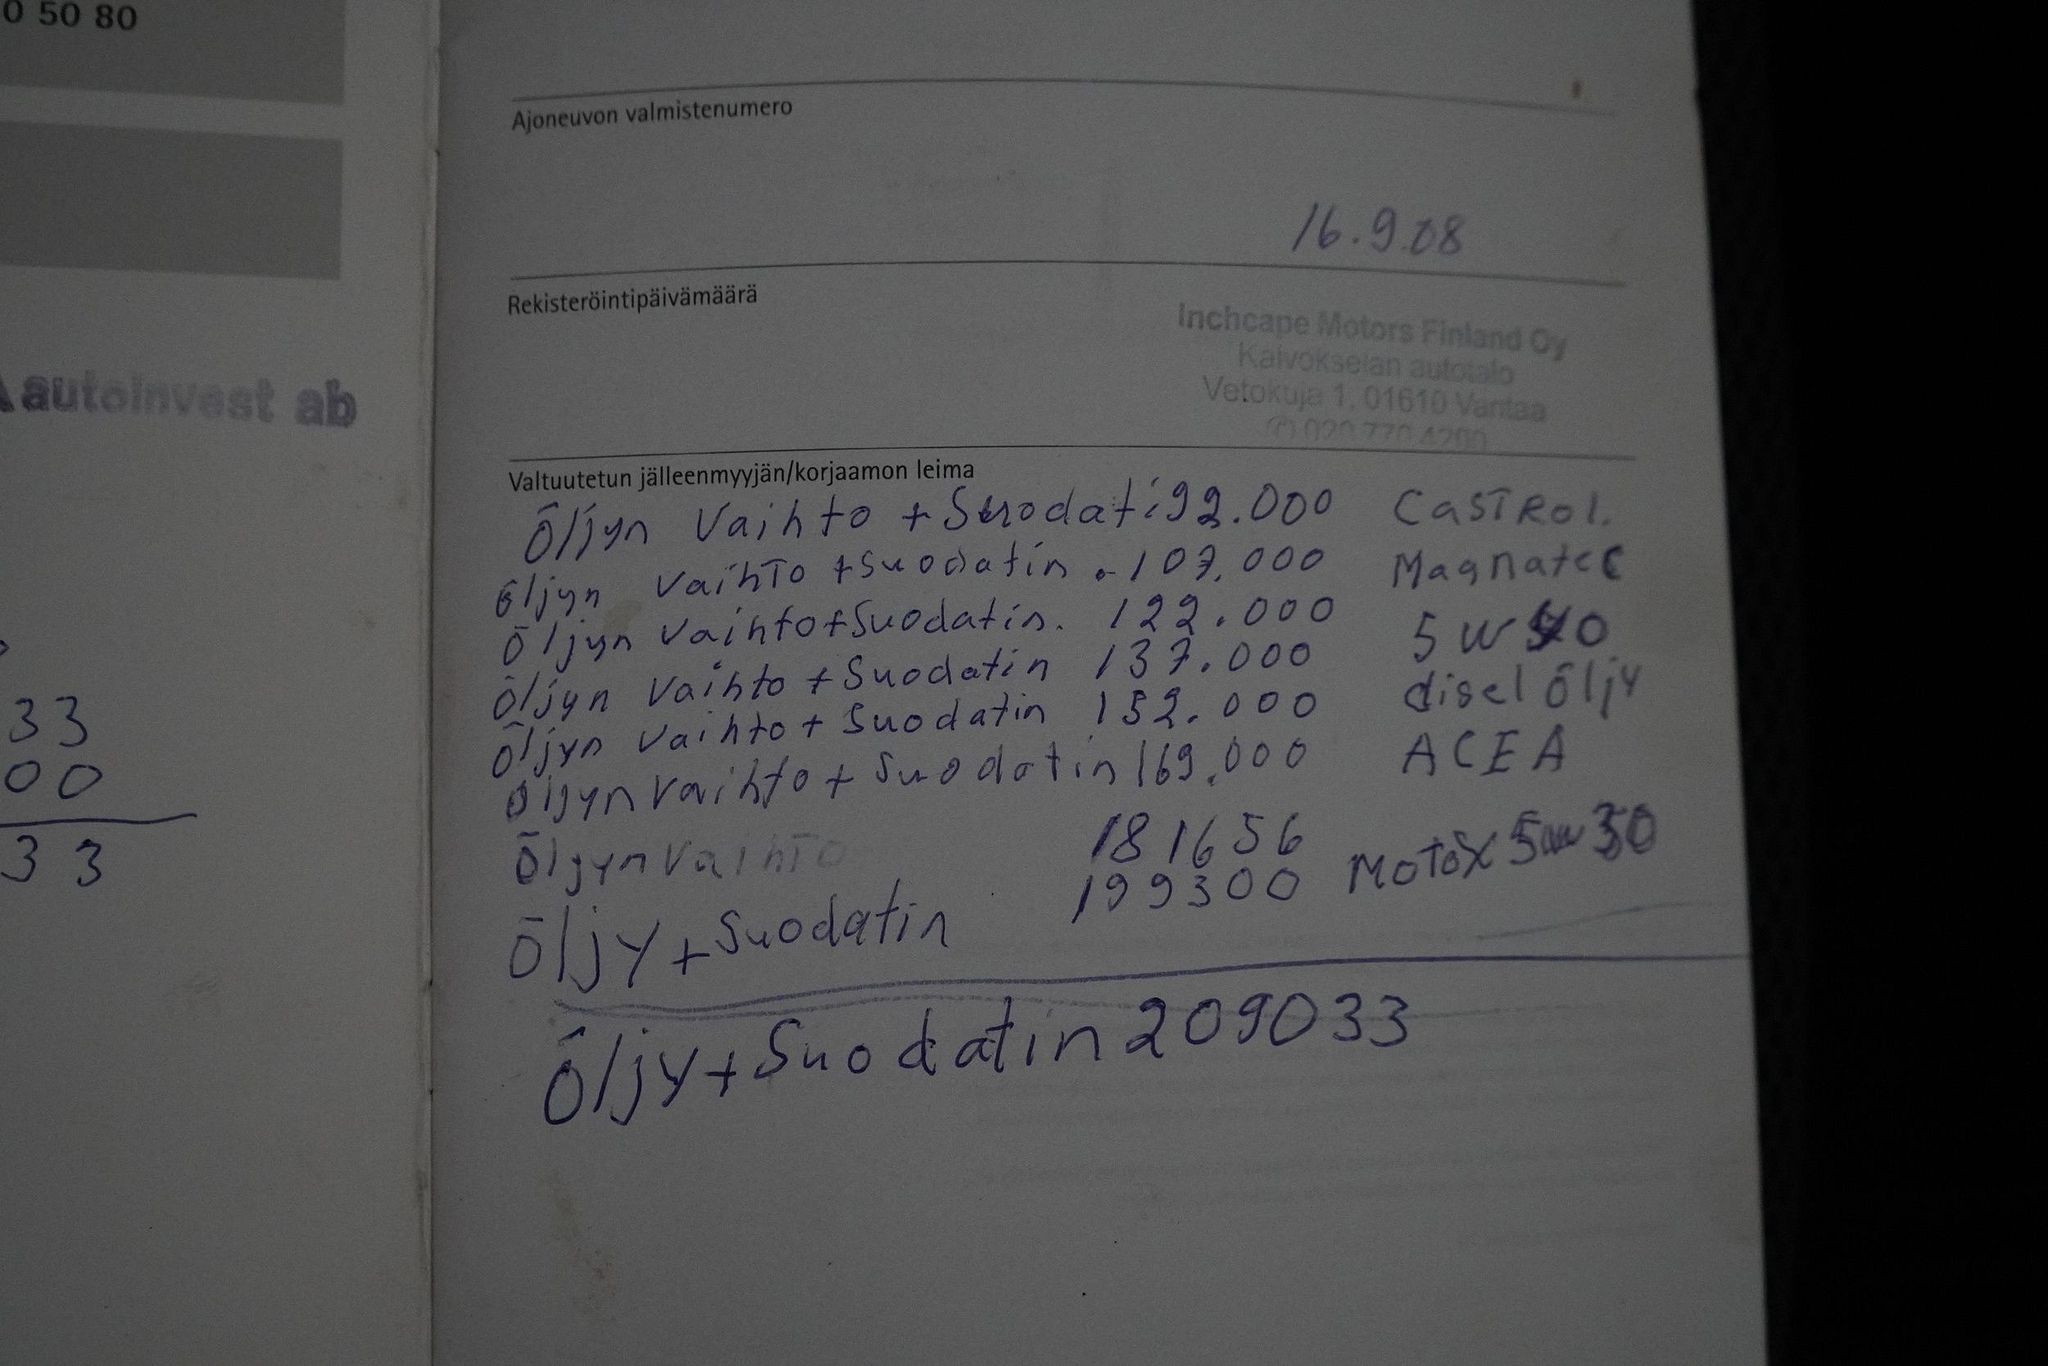 0 50 80
autoinvest ab
33
00
33
Ajoneuvon valmistenumero
16.9.08
Rekisteröintipäivämäärä
Inchcape Motors Finland Oy
Kaivokselan autotalo
Vetokuja 1, 01610 Vantaa
020 770 4200
Valtuutetun jälleenmyyjän/korjaamon leima
Öljyn Vaihto + Suodati 92.000 CASTROL.
Öljyn Vaihto + Suodatin - 107.000 Magnatec
Öljyn Vaihto + Suodatin. 122.000 5W40
Öljyn Vaihto + Suodatin 137.000 disel Öljy
Öljyn Vaihto + Suodatin 152.000 ACEA
Öljyn Vaihto + Suodatin 169.000
Öljyn Vaihto 181656
Öljy + Suodatin 199300 MOTOX 5W30
Öljy + Suodatin 209033